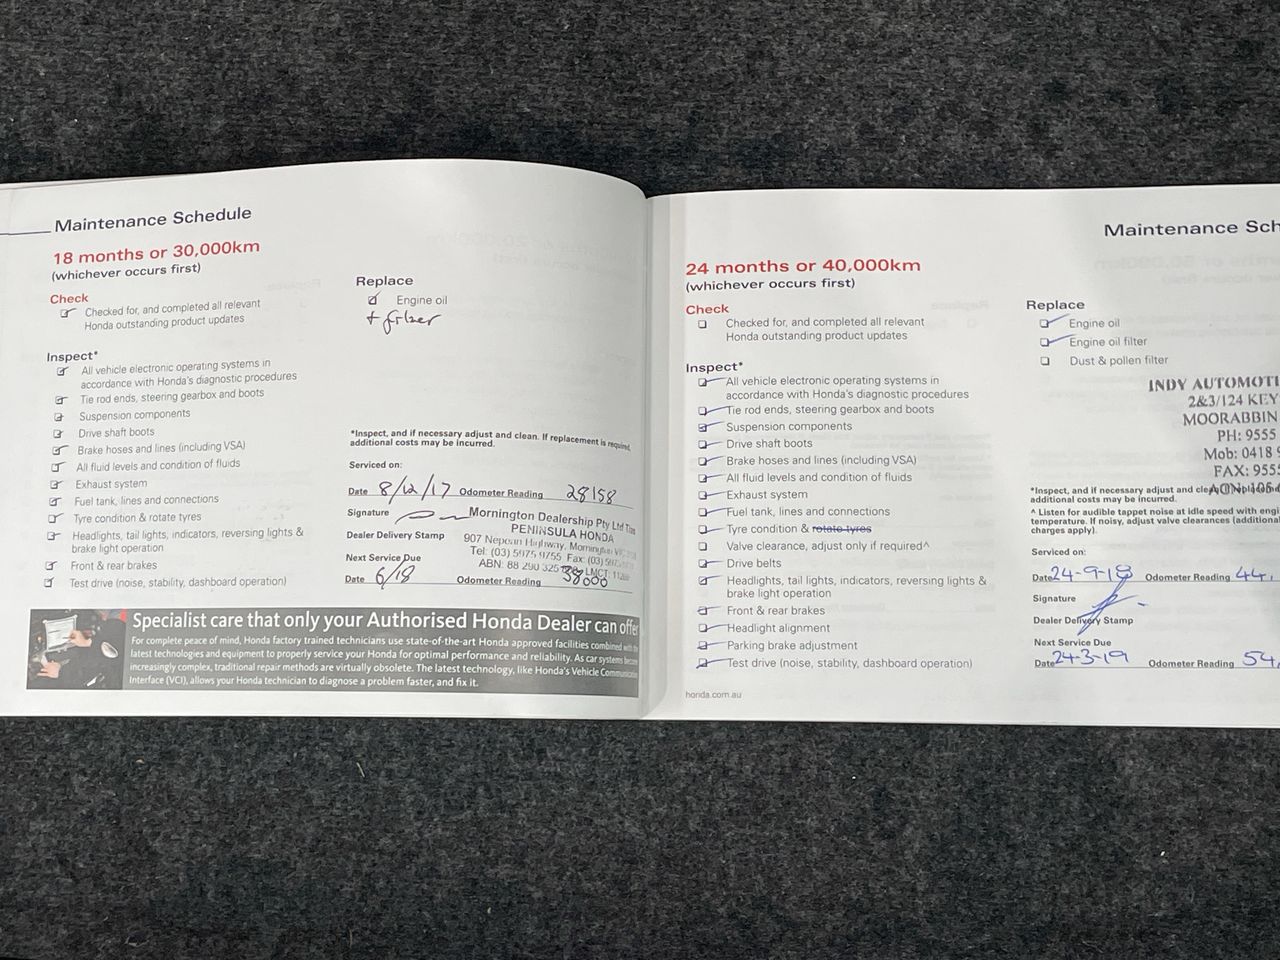 Maintenance Schedule
18 months or 30,000km
(whichever occurs first)
Check
Checked for, and completed all relevant
Honda outstanding product updates
Inspect*
All vehicle electronic operating systems in
accordance with Honda's diagnostic procedures
Tie rod ends, steering gearbox and boots
Suspension components
Drive shaft boots
Brake hoses and lines (including VSA)
All fluid levels and condition of fluids
Exhaust system
Fuel tank, lines and connections
Tyre condition & rotate tyres
Headlights, tail lights, indicators, reversing lights &
brake light operation
Front & rear brakes
Test drive (noise, stability, dashboard operation)
Replace
Engine oil
+ filter
*Inspect, and if necessary adjust and clean. If replacement is required,
additional costs may be incurred.
Serviced on:
Date 8/12/17 Odometer Reading 28158
Signature
Mornington Dealership Pty Ltd
PENINSULA HONDA
Dealer Delivery Stamp
907 Nepean Highway, Mornington VIC
Tel: (03) 5975 9755 Fax: (03)
ABN: 88 290 325 LMCT:
Next Service Due
Date 6/18 Odometer Reading 38000
Specialist care that only your Authorised Honda Dealer can offe
For complete peace of mind, Honda factory trained technicians use state-of-the-art Honda approved facilities combined with the
latest technologies and equipment to properly service your Honda for optimal performance and reliability. As car systems become
increasingly complex, traditional repair methods are virtually obsolete. The latest technology, like Honda's Vehicle Communication
Interface (VCI), allows your Honda technician to diagnose a problem faster, and fix it.
Maintenance Sch
24 months or 40,000km
(whichever occurs first)
Check
Checked for, and completed all relevant
Honda outstanding product updates
Inspect*
All vehicle electronic operating systems in
accordance with Honda's diagnostic procedures
Tie rod ends, steering gearbox and boots
Suspension components
Drive shaft boots
Brake hoses and lines (including VSA)
All fluid levels and condition of fluids
Exhaust system
Fuel tank, lines and connections
Tyre condition & rotate tyres
Valve clearance, adjust only if required^
Drive belts
Headlights, tail lights, indicators, reversing lights &
brake light operation
Front & rear brakes
Headlight alignment
Parking brake adjustment
Test drive (noise, stability, dashboard operation)
honda.com.au
Replace
Engine oil
Engine oil filter
Dust & pollen filter
INDY AUTOMOTI
2&3/124 KEY
MOORABBIN
PH: 9555
Mob: 0418 9
FAX: 9555
*Inspect, and if necessary adjust and
additional costs may be incurred.
^ Listen for audible tappet noise at idle speed with engi
temperature. If noisy, adjust valve clearances (additional
charges apply).
Serviced on:
Date 24-9-18 Odometer Reading 44,
Signature
Dealer Delivery Stamp
Next Service Due
Date 24-3-19 Odometer Reading 54,